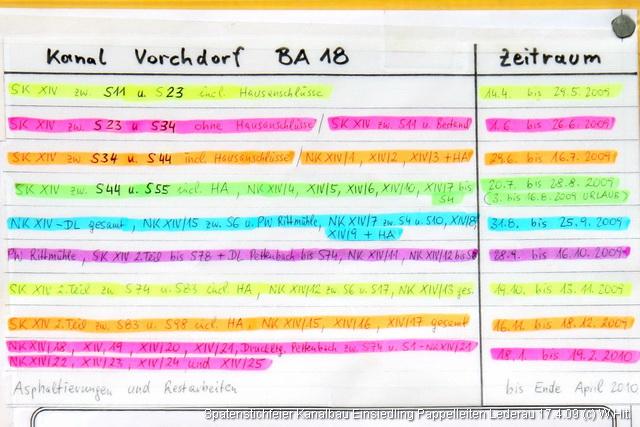 Kanal Vorchdorf BA 18 Zeitraum
SK XIV zw. S11 u. S23 incl. Hausanschlüsse 14.4. bis 29.5.2009
SK XIV zw. S23 u. S34 ohne Hausanschlüsse / SK XIV zw. S11 u. Bestand 1.6. bis 26.6.2009
SK XIV zw. S34 u. S44 incl. Hausanschlüsse / NK XIV/1, XIV/2, XIV/3 + HA 29.6. bis 16.7.2009
SK XIV zw. S44 u. S55 incl. HA, NK XIV/4, XIV/5, XIV/6, XIV/10, XIV/7 bis 20.7. bis 28.8.2009
S4 (3. bis 16.8.2009 URLAUB)
NK XIV-DL gesamt, NK XIV/15 zw. S6 u. PW Rittmühle, NK XIV/7 zw. S4 u. S10, XIV/8, 31.8. bis 25.9.2009
XIV/9 + HA
PW Rittmühle, SK XIV 2.Teil bis S78 + DL Pettenbach bis S74, NK XIV/11, NK XIV/12 bis 28.9. bis 16.10.2009
SK XIV 2.Teil zw. S74 u. S83 incl. HA, NK XIV/12 zw. S6 u. S17, NK XIV/13 ges. 19.10. bis 13.11.2009
SK XIV 2.Teil zw. S83 u. S98 incl. HA, NK XIV/15, XIV/16, XIV/17 gesamt 16.11. bis 18.12.2009
NK XIV/18, XIV/19, XIV/20, XIV/21, Druckltg. Pettenbach zw. S74 u. S1-NKXIV/21 18.1. bis 19.2.2010
NK XIV/22, XIV/23, XIV/24 und XIV/25
Asphaltierungen und Restarbeiten bis Ende April 2010
Spatenstichfeier Kanalbau Einsiedling Pappelleiten Lederau 17.4.09 (c) WHitl